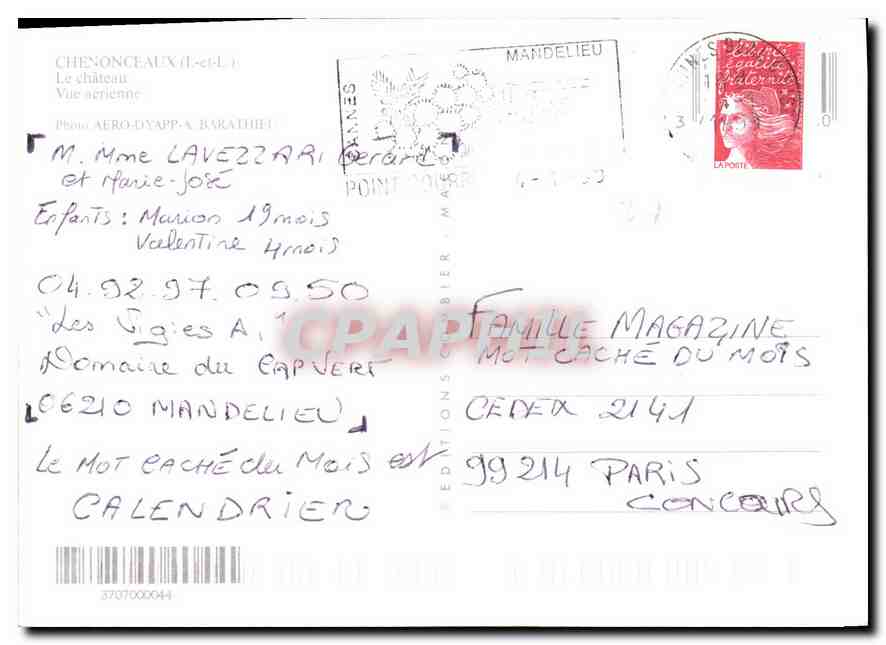 CHENONCEAUX (I.-et-L.)
Le château
Vue aérienne
Photo AERO-DYAPP-A. BARATHIEU
MANDELIEU
CANNES
M. Mme LAVEZZARI Gérard
et Marie-José
Enfants : Marion 19 mois
Valentine 4 mois
04.92.97.09.50
"Les Vigies A,"
Domaine du CAP VERT
06210 MANDELIEU
LE MOT CACHÉ du MOIS est
CALENDRIER
3707000044
EDITIONS
Liberté
égalité
fraternité
LA POSTE
FAMILLE MAGAZINE
MOT CACHÉ DU MOIS
CEDEX 2141
99214 PARIS
CONCOURS
CPAPHIL